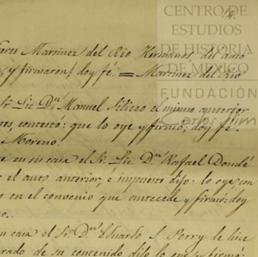 CENTRO DE
ESTUDIOS
DE HISTORIA
DE MÉXICO
FUNDACIÓN
Carlos Slim
ores Martinez del Rio Hermanos, del auto
, y firmaron; doy fé = Martinez del Rio
Sr. Lic. Dn. Manuel Siliceo el mismo anterior
contestó: que lo oye y firmó; doy fé.
Moreno.
en su casa el Sr. Lic. Dn. Rafael Dondé
el auto anterior, é impuesto dijo: lo oye, con
en el convenio que antecede y firmó; doy
no.
en casa el Sr. Dn. Eduardo J. Perry le hice
rado de su contenido dijo lo oye y firmó